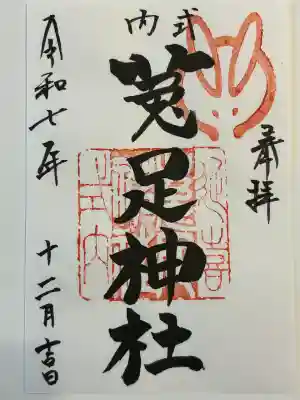 奉拝
式内
菟足神社
令和七年 十二月吉日